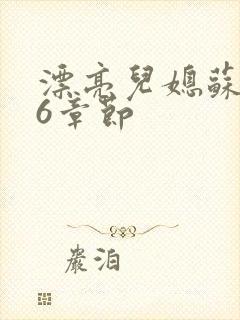 漂亮兒媳蘇
6章節
嚴泊